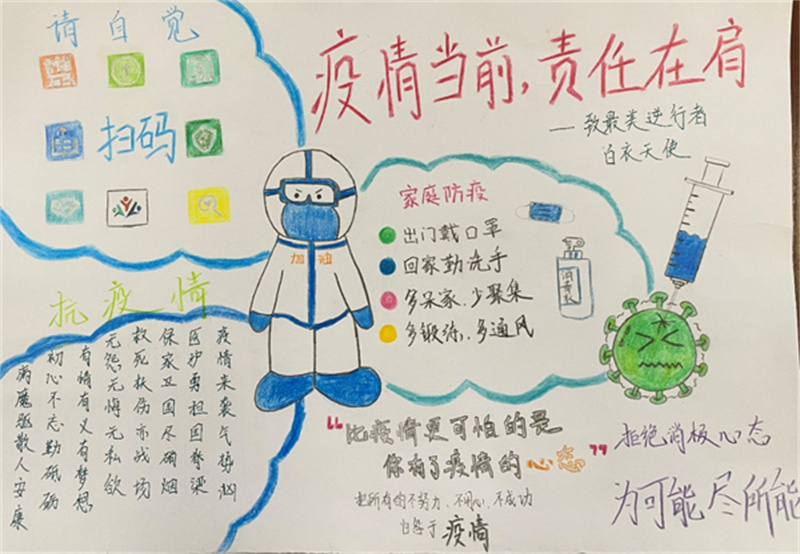 请自觉
扫码
疫情当前,责任在肩
—致最美逆行者
白衣天使
加油
家庭防疫
出门戴口罩
回家勤洗手
多呆家、少聚集
多锻练、多通风
抗疫情
疫情来袭气势汹
医护勇担国脊梁
保家卫国尽硝烟
救死扶伤亦战场
无怨无悔无私欲
有情有义有梦想
初心不忘勤砥砺
病魔驱散人安康
"比疫情更可怕的是
你有了疫情的心态"
把所有的不努力、不用心、不成功
归咎于疫情
拒绝消极心态
为可能尽所能